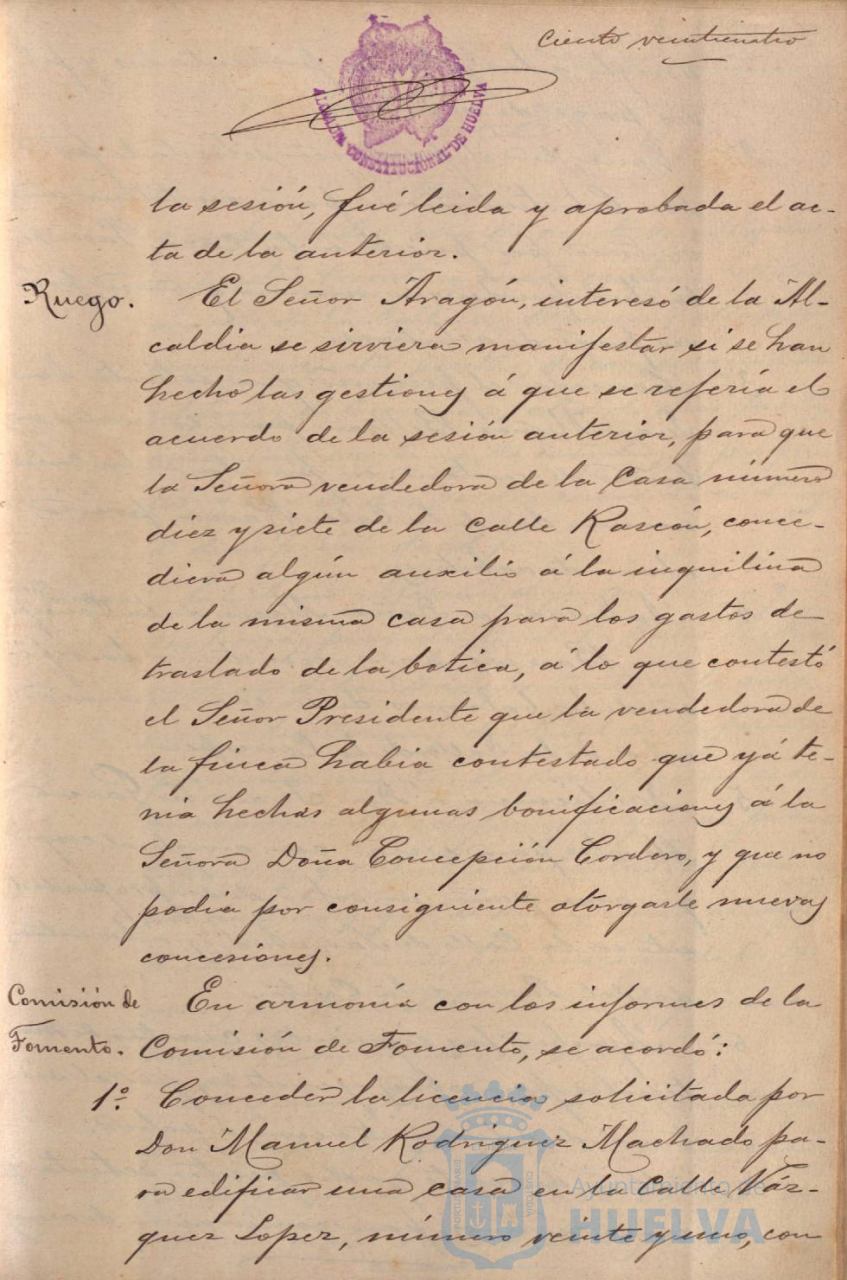 Ciento veinticuatro
ALCALDIA CONSTITUCIONAL DE HUELVA
la sesión, fué leida y aprobada el ac-
ta de la anterior.
Ruego.
El Señor Aragón, interesó de la Al-
caldia se sirviera manifestar si se han
hecho las gestiones á que se refería el
acuerdo de la sesión anterior, para que
la Señora vendedora de la Casa número
diez y siete de la Calle Rascón, conce-
diera algún auxilio á la inquilina
de la misma casa para los gastos de
traslado de la botica, á lo que contestó
el Señor Presidente que la vendedora de
la finca habia contestado que yá te-
nia hechas algunas bonificaciones á la
Señora Doña Concepción Cordero, y que no
podia por consiguiente otorgarle nuevas
concesiones.
Comisión de
Fomento.
En armonía con los informes de la
Comisión de Fomento, se acordó:
1º.
Conceder la licencia solicitada por
Don Manuel Rodriguez Machado pa-
ra edificar una casa en la Calle Váz-
quez Lopez, número veinte y uno, con
Ayuntamiento de
HUELVA